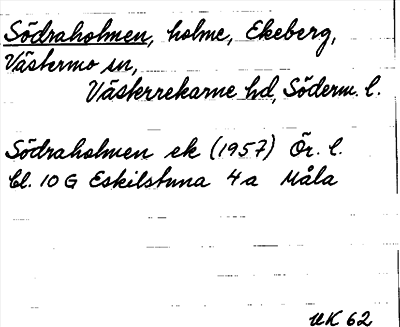 Södraholmen, holme, Ekeberg,
Västermo sn,
Västerrekarne hd, Söderm. l.
Södraholmen ek (1957) Ör. l.
bl. 10 G Eskilstuna 4a Måla
UK 62